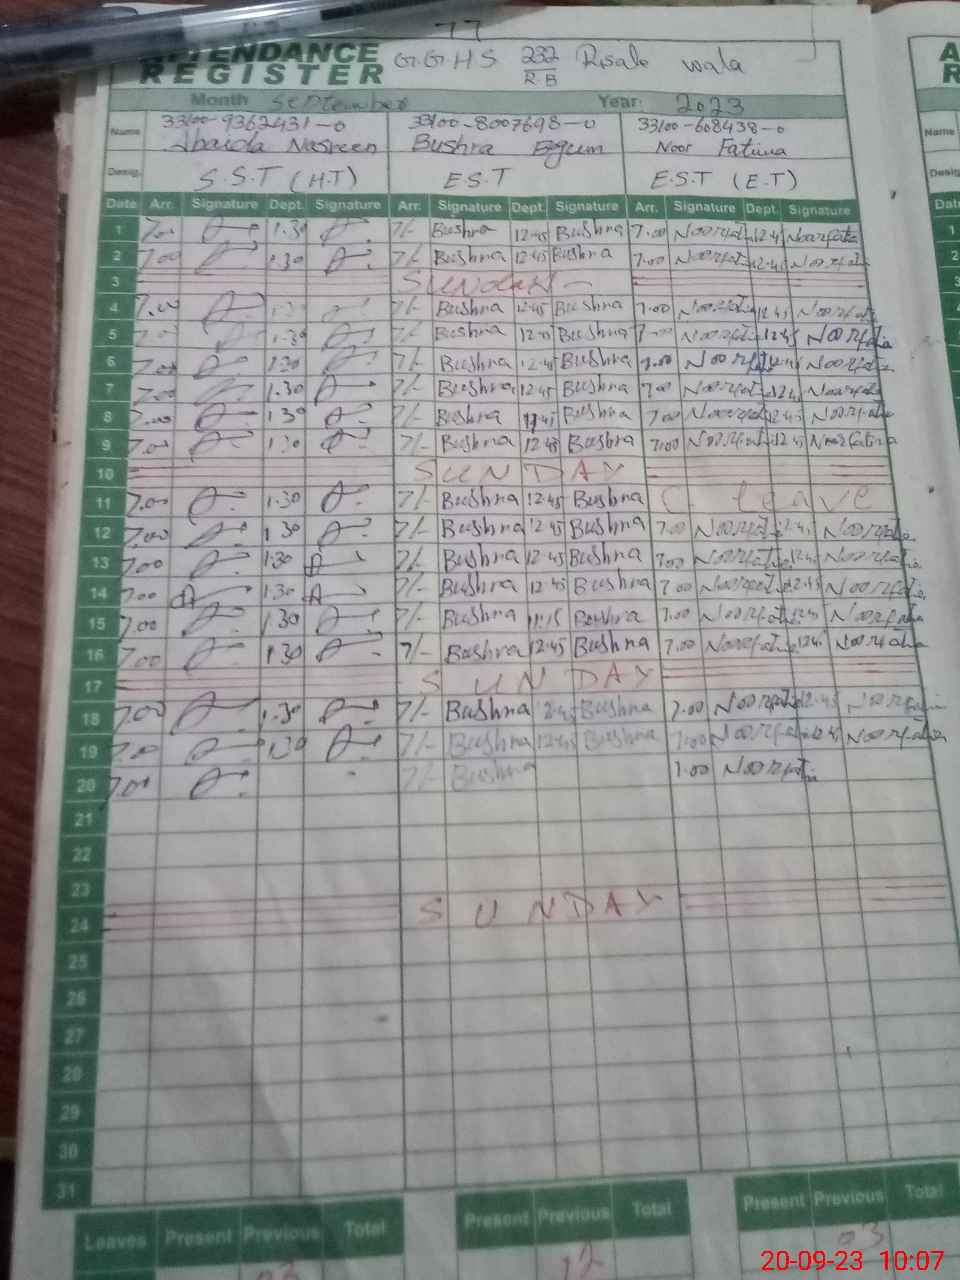 77
ATTENDANCE
REGISTER G.G.H.S 232 R.B Risale wala
Month September Year: 2023
Name 33100-9362431-0 33100-8007698-0 33100-608438-0 Name
Nasreen Bushra Begum Noor Fatima
Desig. S.S.T (H.T) E.S.T E.S.T (E.T) Desig.
Date Arr. Signature Dept. Signature Arr. Signature Dept. Signature Arr. Signature Dept. Signature Date
1 7.00 1.30 7/- Bushra 12.45 Bushra 7.00 Noorfati 12.45 Noorfatia 1
2 7.00 1.30 7/- Bushra 12.45 Bushra 7.00 Noorfati 12.45 Noorfatia 2
3 SUNDAY 3
4 7.00 7/- Bushra 12.45 Bushra 7.00 Noorfati 12.45 Noorfati 4
5 1.30 7/- Bushra 12.45 Bushra 7.00 Noorfati 12.45 Noorfatia
6 7.00 1.30 7/- Bushra 12.45 Bushra 7.00 Noorfati 12.45 Noorfati
7 7.00 1.30 7/- Bushra 12.45 Bushra 7.00 Noorfati 12.45 Noorfatia
8 7.00 1.30 7/- Bushra 11.45 Bushra 7.00 Noorfati 12.45 Noorfatia
9 7.00 1.30 7/- Bushra 12.45 Bushra 7.00 Noorfati 12.45 Noorfatima
10 SUNDAY
11 7.00 1.30 7/- Bushra 12.45 Bushra C. leave
12 7.00 1.30 7/- Bushra 12.45 Bushra 7.00 Noorfati 12.45 Noorfatia
13 7.00 1.30 7/- Bushra 12.45 Bushra 7.00 Noorfatia 12.45 Noorfatia
14 7.00 1.30 7/- Bushra 12.45 Bushra 7.00 Noorfati 12.45 Noorfatia
15 7.00 1.30 7/- Bushra 11.15 Bushra 7.00 Noorfati 12.45 Noorfatia
16 7.00 1.30 7/- Bushra 12.45 Bushra 7.00 Noorfatia 12.45 Noorfatia
17 SUNDAY
18 7.00 1.30 7/- Bushra 12.45 Bushra 7.00 Noorfati 12.45 Noorfatia
19 7.00 1.30 7/- Bushra 12.45 Bushra 7.00 Noorfatia 12.45 Noorfatia
20 7.00 7/- Bushra 7.00 Noorfatia
21
22
23
24 SUNDAY
25
26
27
28
29
30
31
Leaves Present Previous Total Present Previous Total Present Previous Total
03 12 03
20-09-23 10:07